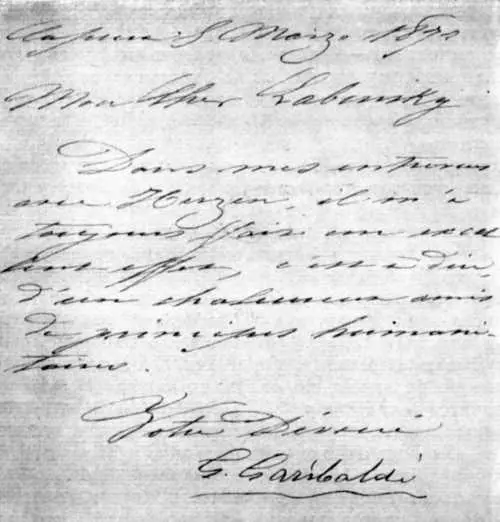 Caprera 8 Marzo 1870
Mon Cher Labinsky
Dans mes entrevues
avec Herzen, il m'a
toujours fait un excel
lent effet, c'est à dire,
d'un chaleureux amis
de principes humani-
taires.
Votre Dévoué
G. Garibaldi